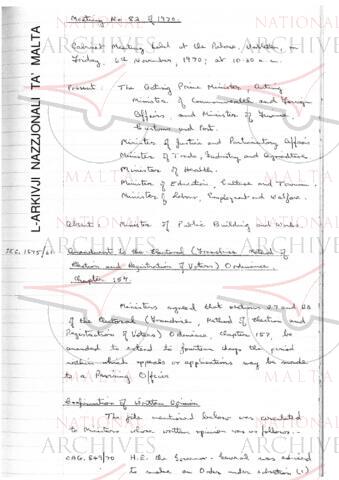 Meeting No 82 of 1970.
Cabinet Meeting held at the Palace, Valletta, on
Friday, 6th November, 1970; at 10.30 a.m.
Present: The Acting Prime Minister, Acting
Minister of Commonwealth and Foreign
Affairs, and Minister of Finance,
Customs and Port.
Minister of Justice and Parliamentary Affairs
Minister of Trade, Industry and Agriculture
Minister of Health.
Minister of Education, Culture and Tourism.
Minister of Labour, Employment and Welfare.
Absent: Minister of Public Building and Works.
Amendment to the Electoral (Franchise, Method of
Election and Registration of Voters) Ordinance,
Chapter
Ministers agreed that sections 27 and
of the Electoral (Franchise, Method of Election and
Registration of Voters) Ordinance, Chapter 157 be
amended to extend to fourteen days the period
within which appeals or applications may be made
to a Revising Officer
Confirmation of Written Opinion
The file mentioned below was circulated
to Ministers whose written opinion was as follows:-
H.E. the Governor-General was advised
to make an Order under subsection (1)
L-ARKIVJI NAZZJONALI TA' MALTA
NATIONAL
ARCHIVES
MALTA